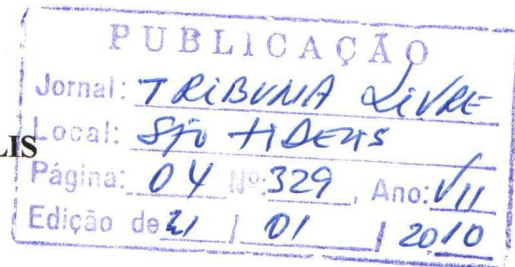 PUBLICAÇÃO
Jornal: TRIBUNA LIVRE
LIS
Local: São FIDELIS
Página: 04 Nº: 329, Ano: VII
Edição de 21 / 01 / 2010